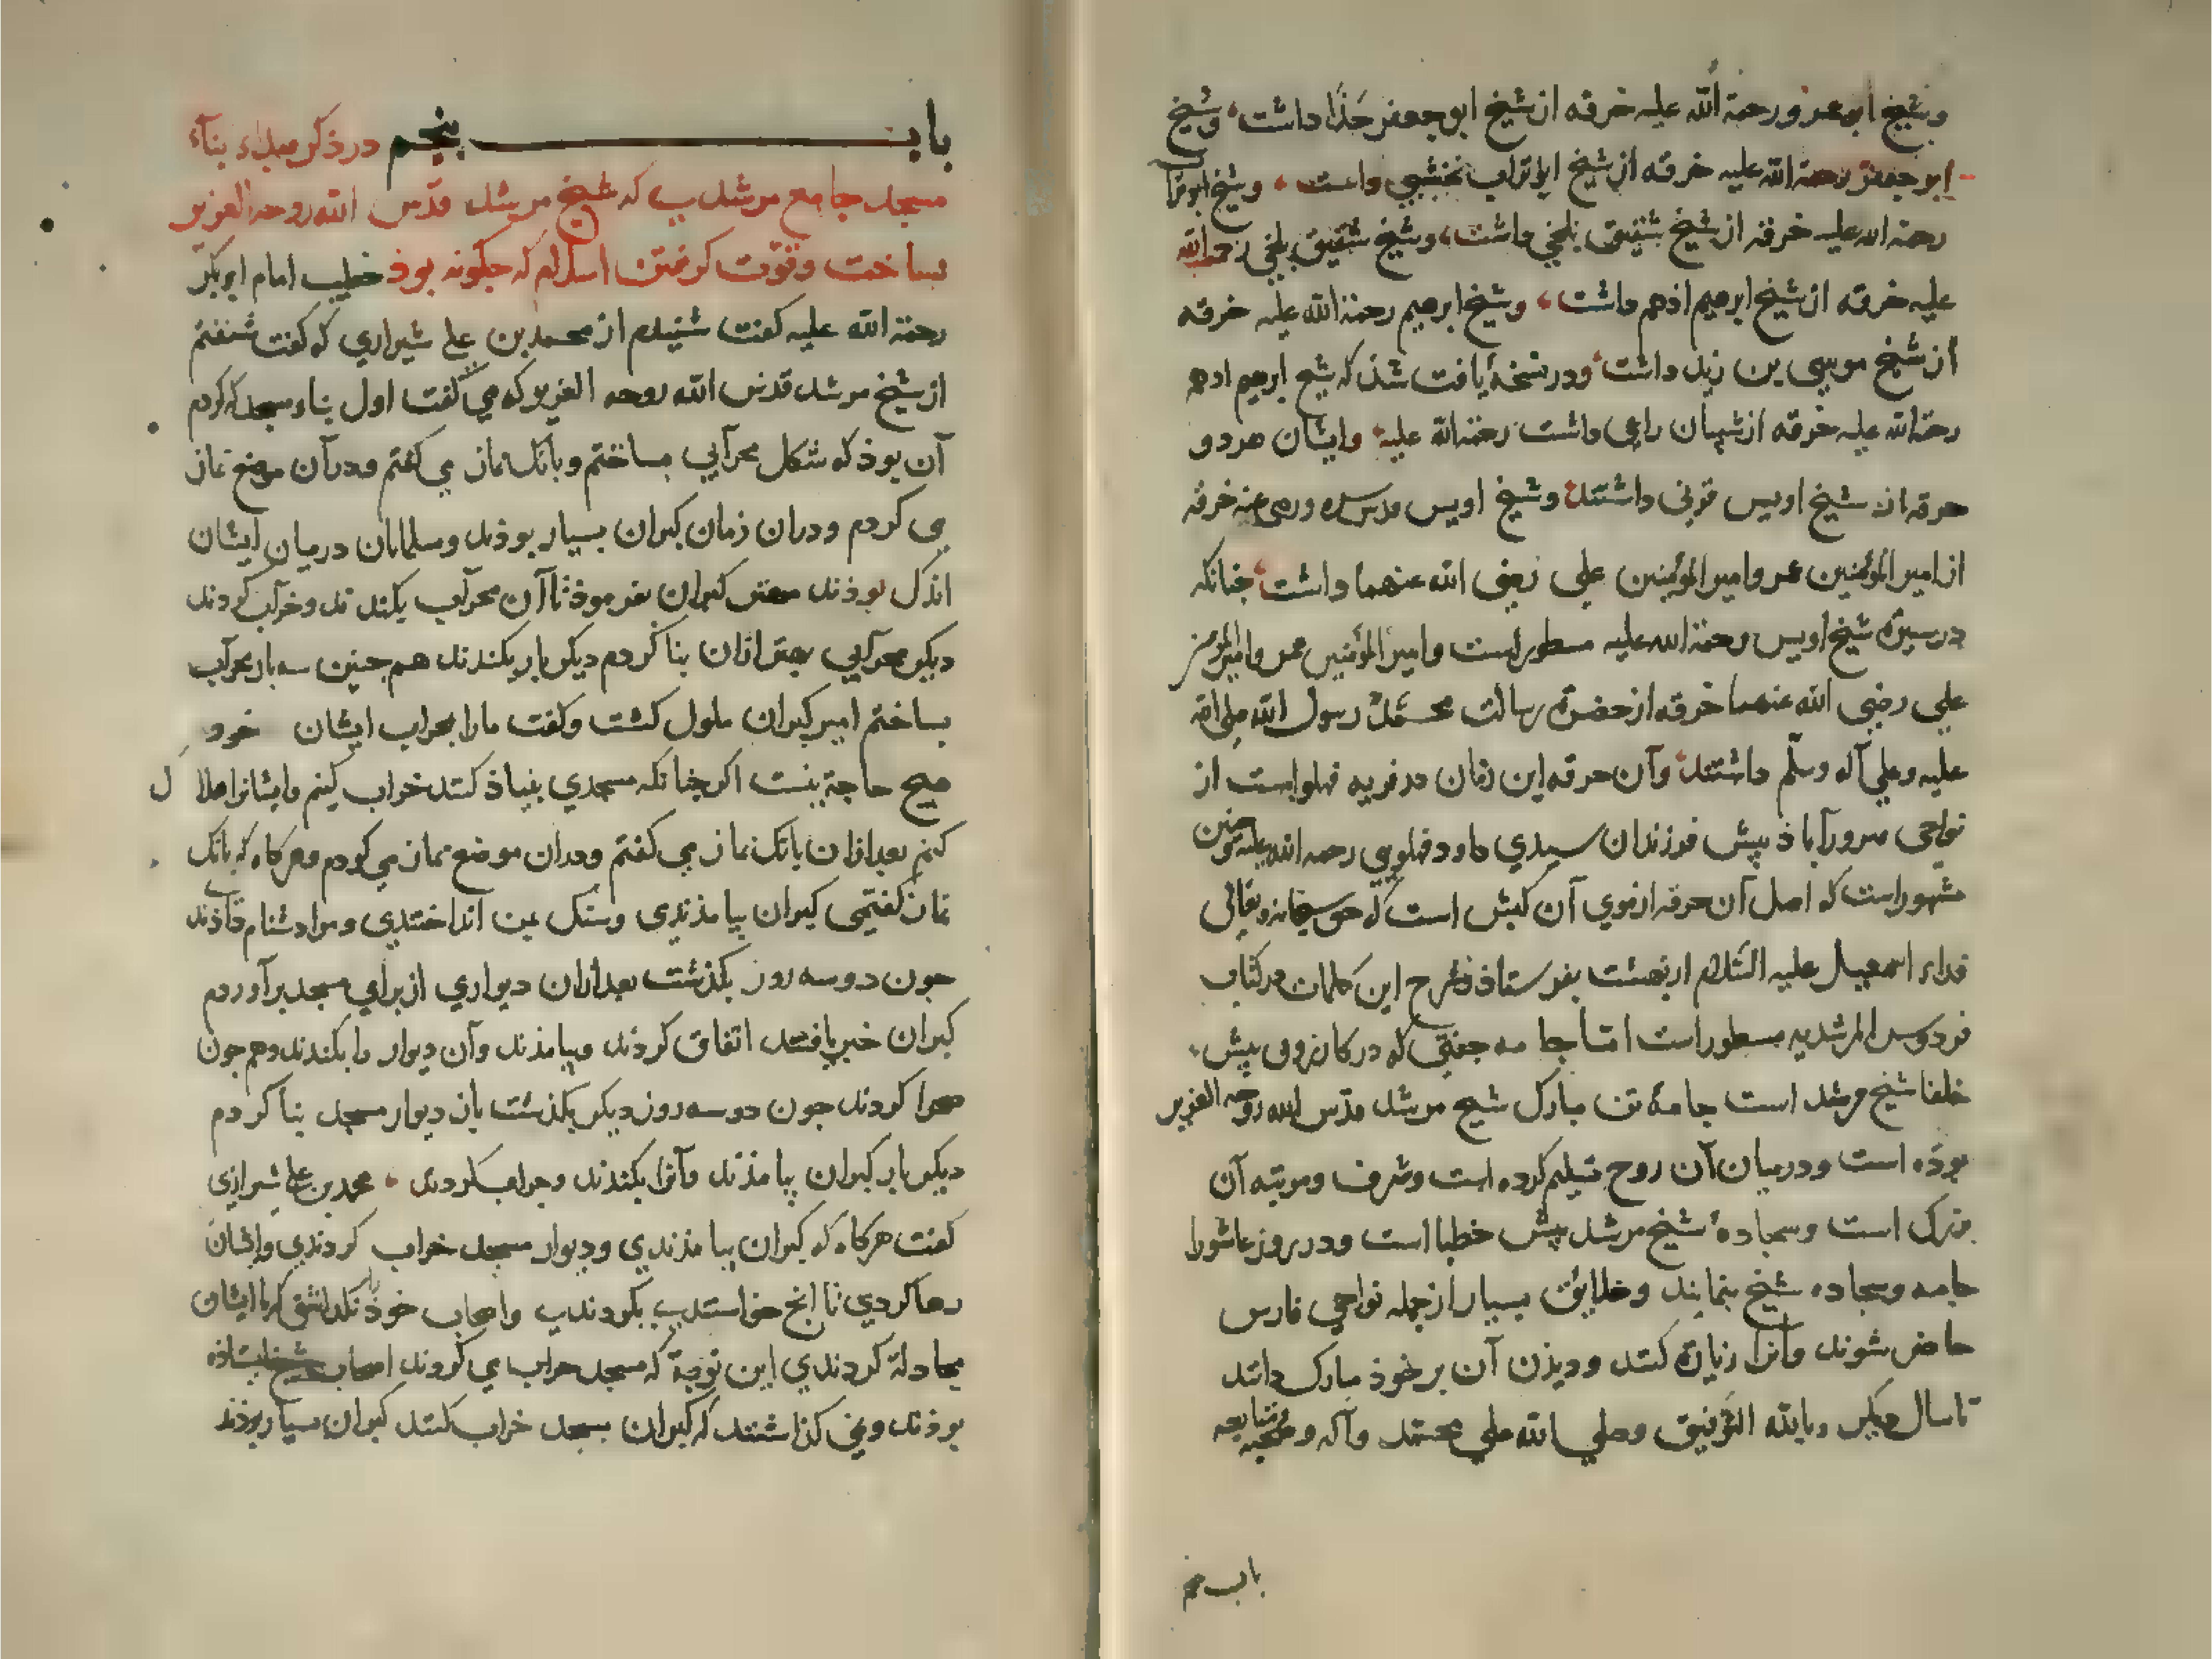 وشیخ ابوعمرو رحمة الله علیه خرقه از شیخ ابوجعفر حذا داشت، وشیخ
ابوجعفر رحمة الله علیه خرقه از شیخ ابوتراب نخشبی داشت، وشیخ ابوتراب
رحمة الله علیه خرقه از شیخ شقیق بلخی داشت، وشیخ شقیق بلخی رحمة الله
علیه خرقه از شیخ ابرهیم اذهم داشت، وشیخ ابرهیم رحمة الله علیه خرقه
از شیخ موسی بن زید داشت، ودر نسخهٔ یافت شذ که شیخ ابرهیم ادهم
رحمة الله علیه خرقه از شیبان راعی داشت رحمة الله علیه، وایشان هردو
خرقه از شیخ اویس قرنی داشتند، وشیخ اویس خرقه
از امیر المؤمنین عمر وامیر المؤمنین علی رضی الله عنهما داشت، چنانکه
در سیرة شیخ اویس رحمة الله علیه مسطور است وامیر المؤمنین عمر وامیر المؤمنین
علی رضی الله عنهما خرقه از حضرة رسالت محمد رسول الله صلی الله
علیه وعلی آله وسلم داشتند، وآن خرقه این زمان در قریه فهلو است از
نواحی سرورآباذ پیش فرزندان سیدی داود فهلویی رحمه الله علیه چنین
مشهور است که اصل آن خرقه از موی آن کبش است که حق سبحانه وتعالی
فداء اسمعیل علیه السلام از بهشت بفرستاذ وشرح این کلمات در کتاب
فردوس المرشدیه مسطور است اما جامه جفتی که در کازرون پیش
خلفا شیخ مرشد است جامهٔ تن مبارک شیخ مرشد قدس الله روحه العزیز
بوذه است ودر میان آن روح تسلیم کرده است وشرف ومرتبه آن
بزرک است وسجادهٔ شیخ مرشد پیش خطبا است ودر روز عاشورا
جامه وسجاده شیخ بنمایند وخلایق بسیار از جمله نواحی فارس
حاضر شوند وآنرا زیارة کنند ودیذن آن بر خوذ مبارک دانند
تا سال دیکر وبالله التوفیق وصلی الله علی محمد وآله وصحبه
باب پنجم
باب پنجم در ذکر مبداء بناء
مسجد جامع مرشدی که شیخ مرشد قدس الله روحه العزیز
بساخت وقوت کرفتن اسلام که چکونه بوذ خطیب امام ابوبکر
رحمة الله علیه کفت شنیدم از محمد بن علی شیرازی که کفت شنفتم
از شیخ مرشد قدس الله روحه العزیز که می کفت اول بناء مسجد که کردم
آن بوذ که شکل محرابی بساختم وبانک نماز می کفتم ودر آن موضع نماز
می کردم ودران زمان کبران بسیار بوذند ومسلمانان درمیان ایشان
اندک بوذند مهتر کبران بفرموذ تا آن محراب بکندند وخراب کردند
دیکر محرابی بهتر ازان بنا کردم دیکر بار بکندند هم چنین سه بار محراب
بساختم امیر کبران ملول کشت وکفت مارا بمحراب ایشان خرد
هیچ حاجة نیست اکر چنانکه مسجدی بنیاذ کنند خراب کنیم وایشانرا هلاک
کنیم بعد ازان بانک نماز می کفتم ودران موضع نماز می کردم وهرکاه که بانک
نماز کفتمی کبران بیامذندی وسنک بمن انداختندی ومرا دشنام دادند
چون دوسه روز بکذشت بعد ازان دیواری از برای مسجد برآوردم
کبران خبر یافتند اتفاق کردند وبیامذند وآن دیوار را بکندند وهم چون
صحرا کردند چون دوسه روز دیکر بکذشت باز دیوار مسجد بنا کردم
دیکر بار کبران بیامذند وآنرا بکندند وخراب کردند، محمد بن علی شیرازی
کفت هرکاه که کبران بیامذندی ودیوار مسجد خراب کردندی وایشان
رها کردی تا انچ خواستندی بکردندی واصحاب خوذ نکذاشتی که با ایشان
مجادلة کردندی این نوبة که مسجد خراب می کردند اصحاب شیخ ایستاذه
بوذند ونمی کذاشتند که کبران مسجد خراب کنند کبران بسیار بوذند